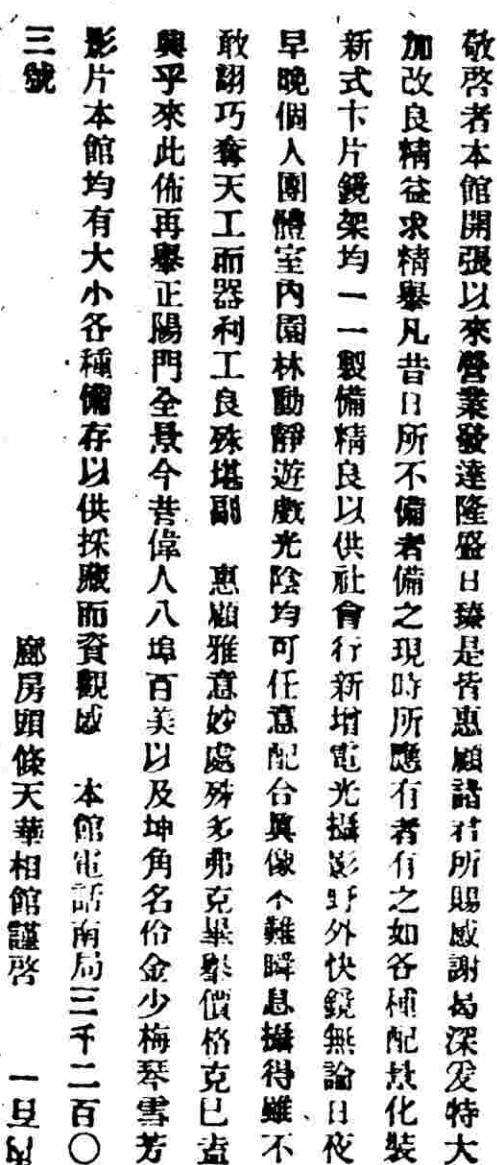 敬啓者本館開張以來營業發達隆盛日臻是皆惠顧諸君所賜感謝曷深爰特大
加改良精益求精舉凡昔日所不備者備之現時所應有者有之如各種配景化裝
新式卡片鏡架均一一製備精良以供社會行新增電光攝影野外快鏡無論日夜
早晚個人團體室內園林動靜遊戲光陰均可任意配合眞像不難瞬息攝得雖不
敢詡巧奪天工而器利工良殊堪副 惠顧雅意妙處殊多弗克畢舉價格克已盍
興乎來此佈再舉正陽門全景今昔偉人八埠百美以及坤角名伶金少梅琴雪芳
影片本館均有大小各種備存以供採廠而資觀感 本館電話南局三千二百〇
三號 廊房頭條天華相館謹啓 一旦內